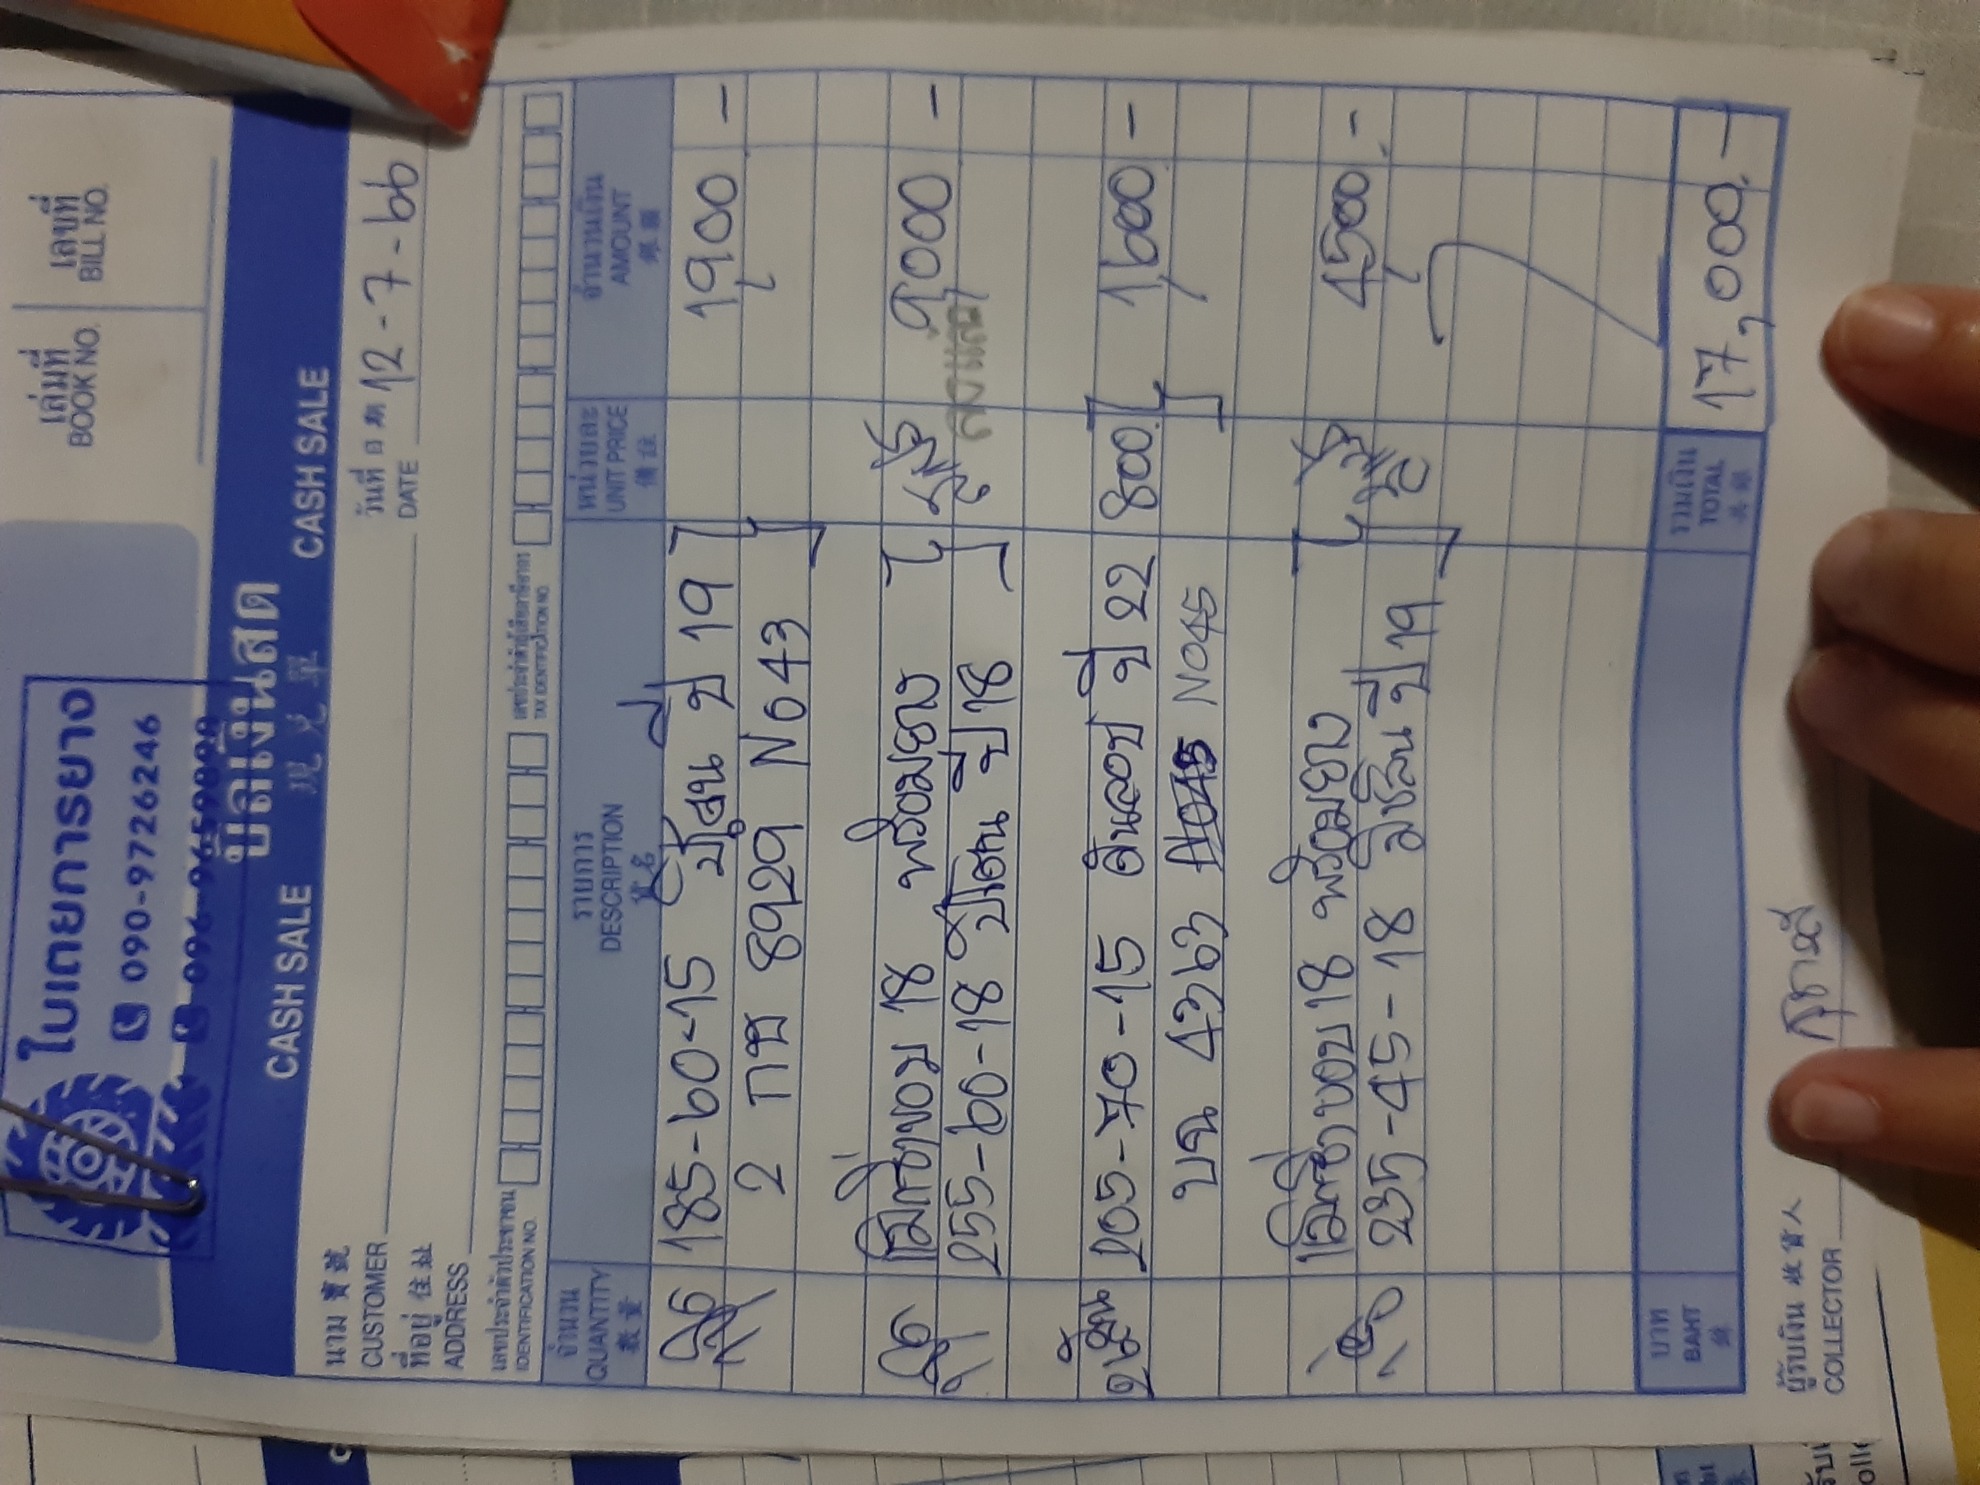 ใบเตยการยาง
090-9726246
096-9659898
เล่มที่
BOOK NO.
เลขที่
BILL NO.
CASH SALE บิลเงินสด CASH SALE
現兑單
นาม 賣號
CUSTOMER
วันที่ 日期 12-7-66
DATE
ที่อยู่ 住址
ADDRESS
เลขประจำตัวประชาชน
IDENTIFICATION NO.
เลขประจำตัวผู้เสียภาษีอากร
TAX IDENTIFICATION NO.
จำนวน รายการ หน่วยละ จำนวนเงิน
QUANTITY DESCRIPTION UNIT PRICE AMOUNT
數量 貨名 價註 銀額
185-60-15 ปี 19 1,900 -
2 กช 8929 N643
แม็กขอบ 18 พร้อมยาง 9,000 -
255-60-18 ปี 18 ลงแล้ว
2เส้น 205-70-15 ดันลอป ปี 22 800 1,600 -
บน 4363 N045
แม็กขอบ 18 พร้อมยาง 4,500 -
235-45-18 มิชลิน ปี 19
บาท
BAHT
รวมเงิน
TOTAL
17,000.-
ผู้รับเงิน 收貨人
COLLECTOR